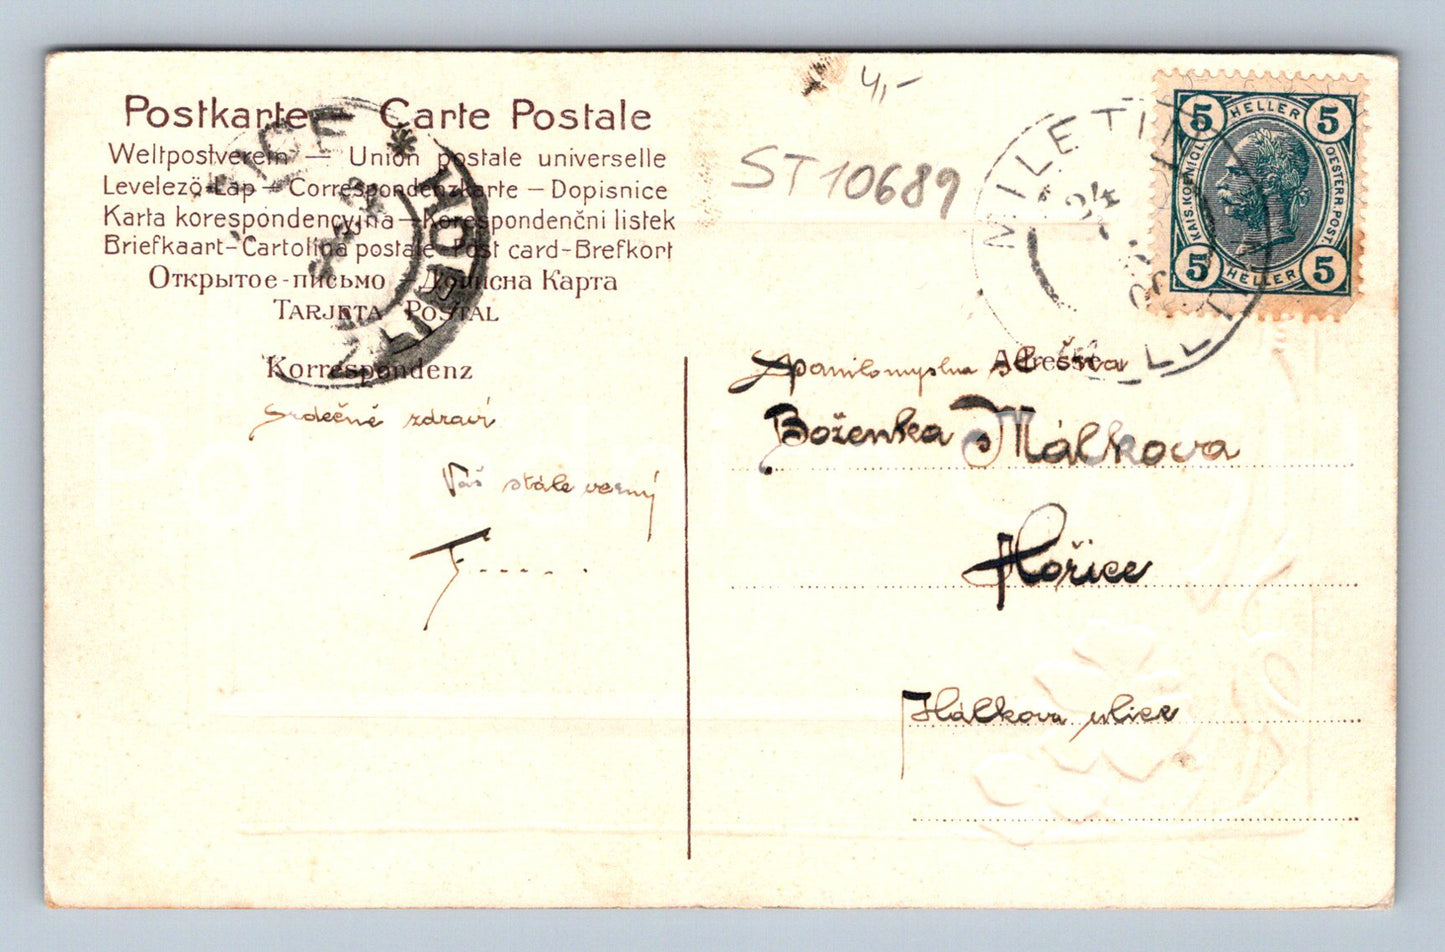 Postkarte Carte Postale
Weltpostverein — Union postale universelle
Levelezö-Lap — Correspondenzkarte — Dopisnice
Karta korespondencyjna — Korespondenčni listek
Briefkaart - Cartolina postale - Post card - Brefkort
Открытое-письмо — Дописна Карта
TARJETA POSTAL
Korrespondenz
Srdečně zdraví
Váš stále verný
F......
4,-
ST10689
5 HELLER 5
KAIS. KÖNIGL.
OESTERR. POST.
5 HELLER 5
MILETIN
MILLETIN
HOŘITZ
Adresse
slečna
Boženka Málkova
Hořice
Hálkova ulice